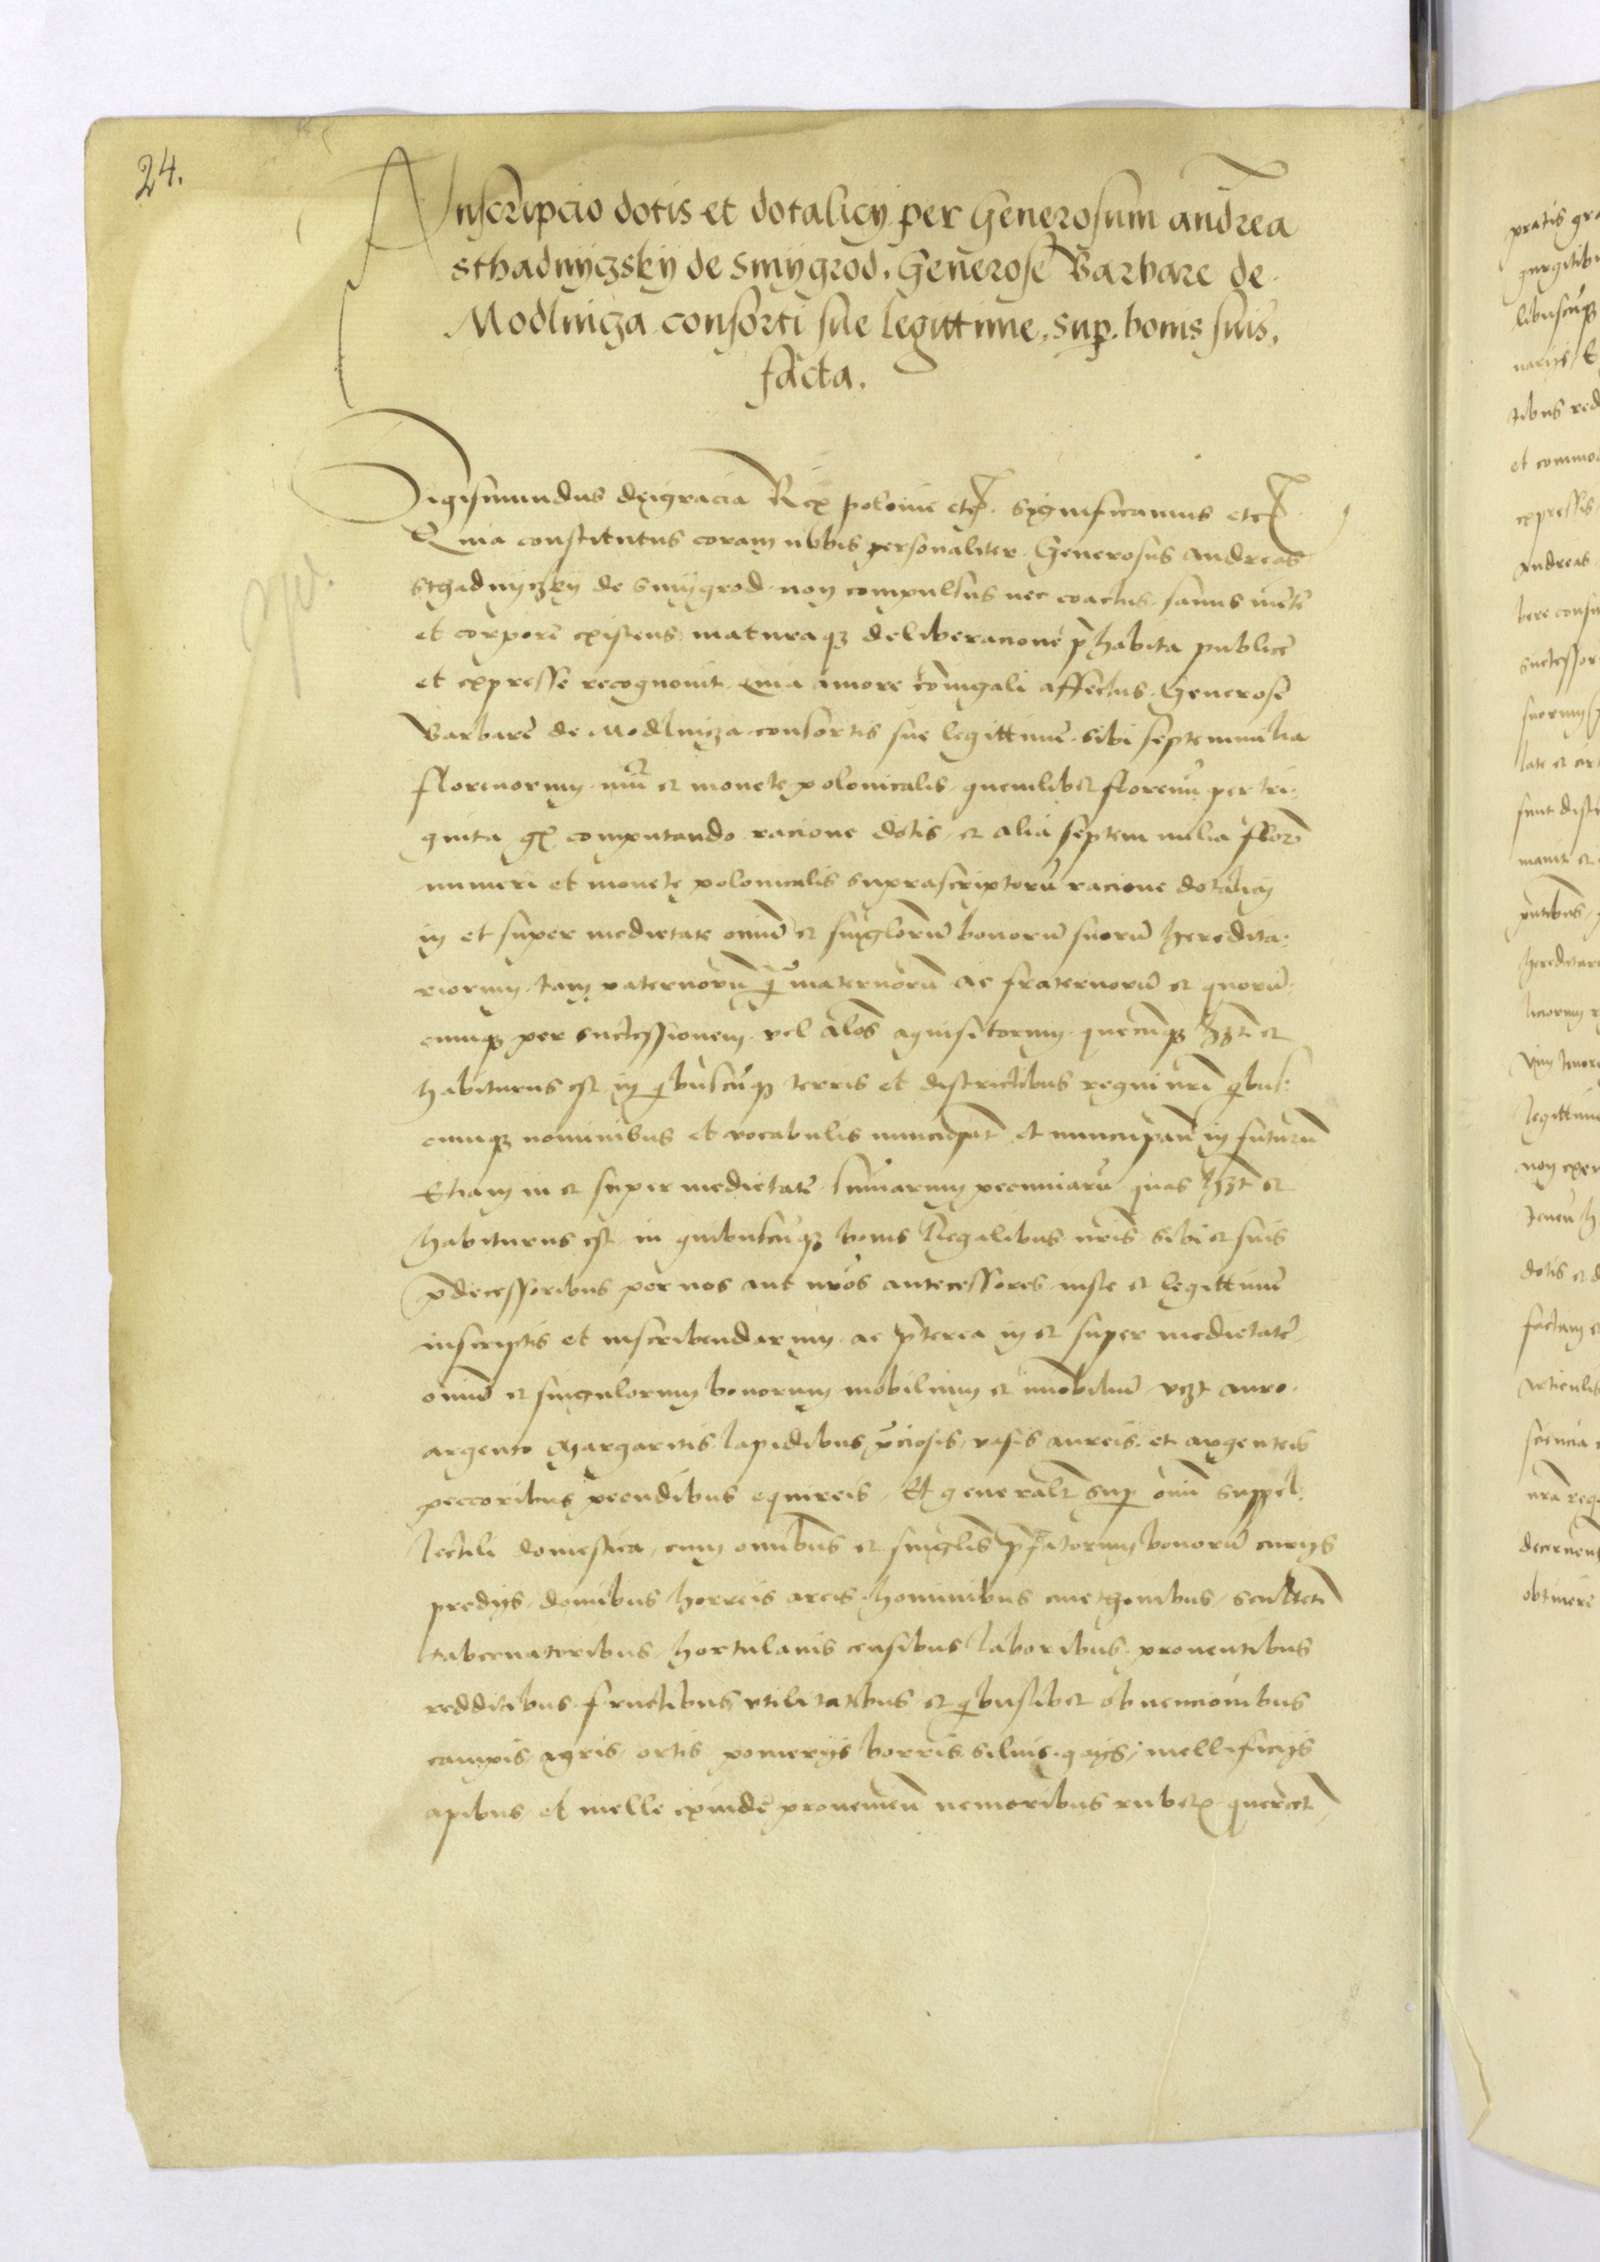 24.
Inscripcio dotis et dotalicij per Generosum andrea
sthadnyczsky de Smygrod. Generose Barbare de
Modlnicza consorti sue legittime, sup. bonis suis,
facta.
Sigismundus deigracia Rex polonie etc. significamus etc
Quia constitutus coram nobis personaliter Generosus andreas
sthadnyczky de smygrod non compulsus nec coactus sanus mente
et corpore existens maturaq deliberacione p habita publice
et expresse recognovit Quia amore coniugali affectus Generose
Barbare de Modlnicza consortis sue legittime sibi septem milia
florenorum nui et monete polonicalis quemlibet florenu per tri
ginta gr computando racione dotis et alia septem milia flor
numeri et monete polonicalis suprascriptoru racione dotalicij
in et super medietate omniu et singloru bonoru suoru heredita
riorum tam paternoru q maternoru ac fraternoru et quoru
cumq per successionem vel alos aquisitorum quecuq hzt et
habiturus est in qbuscuq terris et districtibus regni nri qbus
cumq nominibus et vocabulis nuncupat et nuncupan in futuru
Etiam in et super medietate sumarum pecuniaru quas hzt et
habiturus est in quibuscuq bonis Regalibus nris sibi et suis
pdecessoribus per nos aut nros antecessores iuste et legittime
inscriptis et inscribendarum ac pterea in et super medietate
omniu et singulorum bonorum mobilium et imobiliu vzt auro
argento Margaritis lapidibus pciosis vasis aureis et argenteis
peccoribus pecudibus equireis Et generalr sup omni suppel
lectili domestica cum omibus et singlis pfatorum bonoru curijs
predijs domibus horreis areis hominibus cmethonibus scultet
tabernatoribus hortulanis censibus laboribus proventibus
redditibus fructibus utilitatibus et qbuslibet obvencionibus
campis agris ortis pomerijs borris silvis gays mellificijs
apibus et melle exinde provenien nemoribus rubet quercet